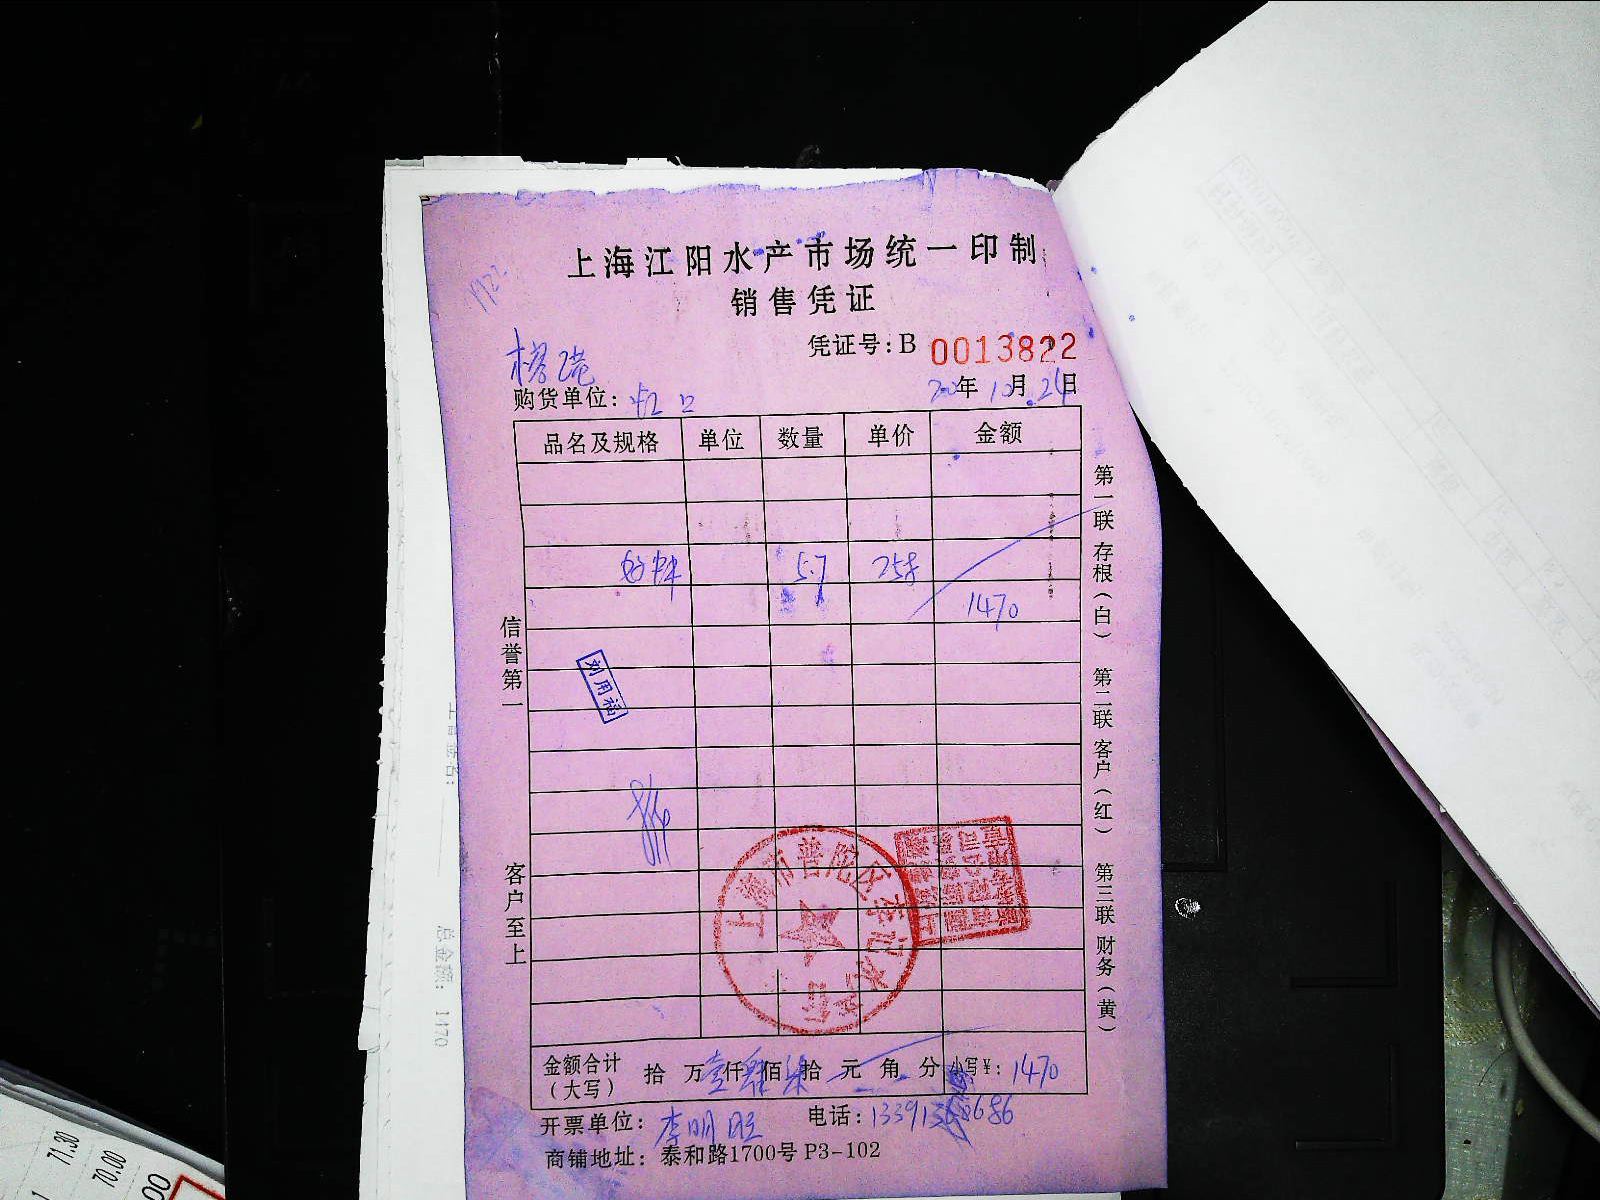 上海江阳水产市场统一印制
销售凭证
凭证号:B 0013822
购货单位: 虹口
20年10月24日
品名及规格 单位 数量 单价 金额
5.7
1470
刘用福
信誉第一
客户至上
第一联 存根(白) 第二联 客户(红) 第三联 财务(黄)
上海市普陀区李记水产行
金额合计(大写) 拾 万壹仟肆佰柒拾 元 角 分 小写¥: 1470
开票单位: 李明旺 电话:
商铺地址: 泰和路1700号 P3-102
总金额: 1470
71.30
70.00